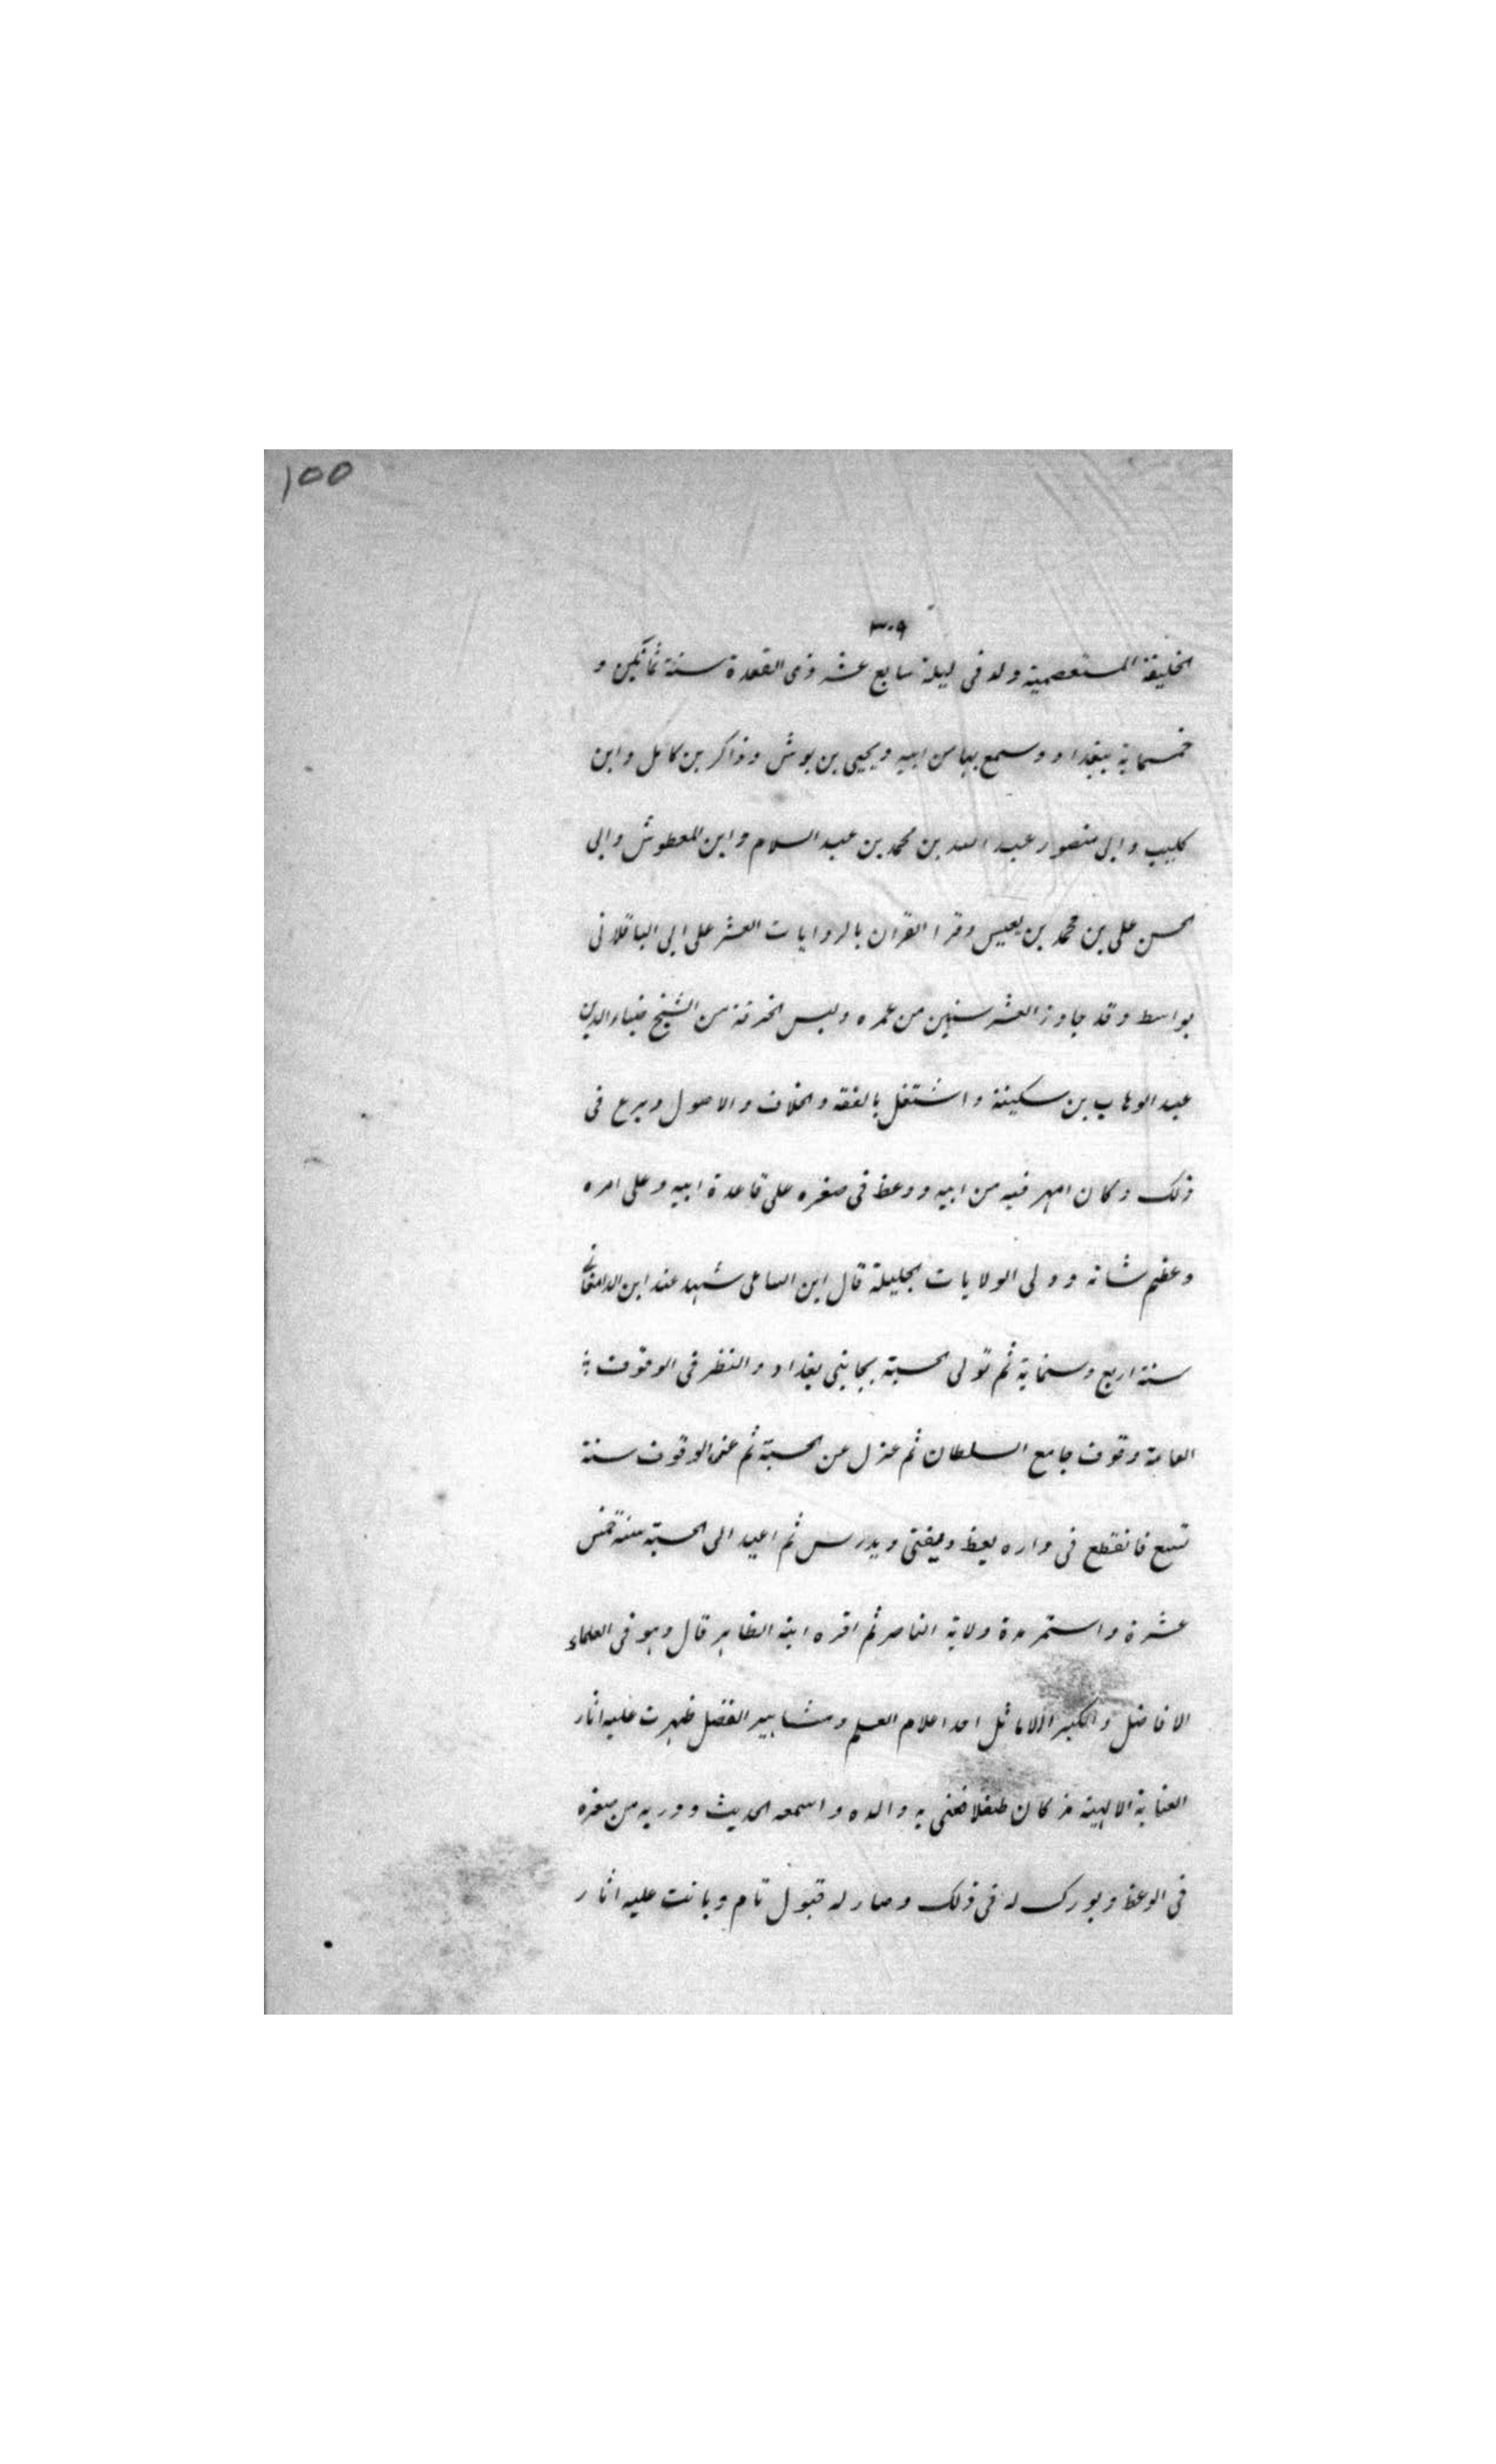 ١٥٥
٣٠٩
الخليفة المستعصمية ولد فى ليلة سابع عشر ذى القعدة سنة ثمانين و
خمسماية ببغداد وسمع بها من ابيه ويحيى بن بوش وذاكر بن كامل وابن
كليب وابى منصور عبد الله بن محمد بن عبد السلام وابن المعطوش وابى
الحسن على بن محمد بن يعيس وقرا القران بالروايات العشر على ابى الباقلانى
بواسط وقد جاوز العشر سنين من عمره ولبس الخرقة من الشيخ ضياء الدين
عبد الوهاب بن سكينة واشتغل بالفقه والخلاف والاصول وبرع فى
ذلك وكان امهر فيه من ابيه ووعظ فى صغره على قاعدة ابيه وعلى امره
وعظم شانه وولى الولايات الجليلة قال ابن الساعى شهد عند ابن الدامغانى
سنة اربع وستماية ثم تولى الحسبة بجانبى بغداد والنظر فى الوقوف
العامة وقوف جامع السلطان ثم عزل عن الحسبة ثم عن الوقوف سنة
تسع فانقطع فى داره يعظ ويفتى ويدرس ثم اعيد الى الحسبة سنة خمس
عشرة واستمر مدة ولاية الناصر ثم اقره ابنه الظاهر قال وهو فى العلماء
الافاضل والكبير الاماثل احد اعلام العلم ومشاهير الفضل ظهرت عليه اثار
العناية الالهية مذ كان طفلا فعنى به والده واسمعه الحديث ودربه من صغره
فى الوعظ وبورك له فى ذلك وصار له قبول تام وبانت عليه اثار